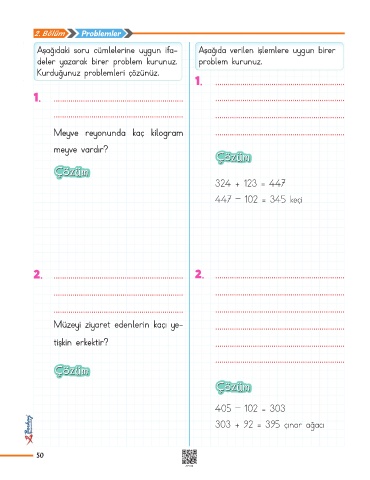 2. Bölüm Problemler
Aşağıdaki soru cümlelerine uygun ifa-
deler yazarak birer problem kurunuz.
Kurduğunuz problemleri çözünüz.
1.
Meyve reyonunda kaç kilogram
meyve vardır?
Çözüm
2.
Müzeyi ziyaret edenlerin kaçı ye-
tişkin erkektir?
Çözüm
Aşağıda verilen işlemlere uygun birer
problem kurunuz.
1.
Çözüm
324 + 123 = 447
447 – 102 = 345 keçi
2.
Çözüm
405 – 102 = 303
303 + 92 = 395 çınar ağacı
50